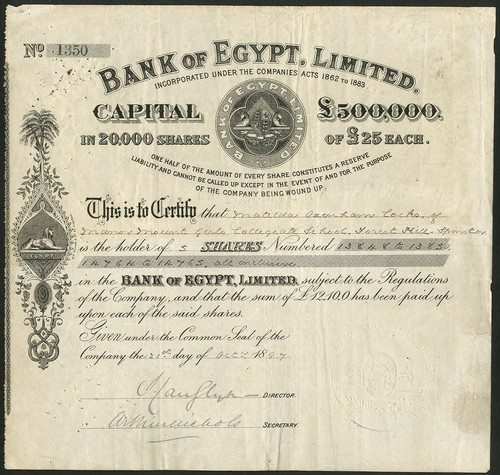 No 1350
BANK OF EGYPT, LIMITED.
INCORPORATED UNDER THE COMPANIES ACTS 1862 TO 1883
CAPITAL £500,000,
IN 20,000 SHARES OF £25 EACH.
BANK OF EGYPT LIMITED
ONE HALF OF THE AMOUNT OF EVERY SHARE CONSTITUTES A RESERVE
LIABILITY AND CANNOT BE CALLED UP EXCEPT IN THE EVENT OF AND FOR THE PURPOSE
OF THE COMPANY BEING WOUND UP.
This is to Certify that Matilda Oxenham Cocks, of
Manor Mount Girls Collegiate School, Forest Hill, Spinster
is the holder of 5 SHARES Numbered 13848 to 13850,
14764 to 14765, all inclusive
EGYPT
in the BANK OF EGYPT, LIMITED, subject to the Regulations
of the Company, and that the sum of £12.10.0 has been paid up
upon each of the said shares.
Given under the Common Seal of the
Company the 21st day of Octr 1897
DIRECTOR.
SECRETARY.